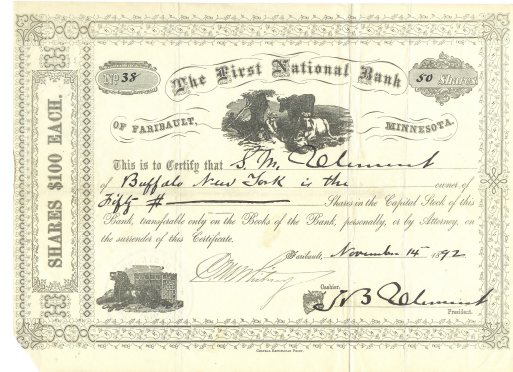 No 38
The First National Bank
50 Shares
OF FARIBAULT,
MINNESOTA.
SHARES $100 EACH.
This is to Certify that S. M. Clement
of Buffalo New York is the owner of
Fifty # Shares in the Capital Stock of this
Bank, transferable only on the Books of the Bank, personally, or by Attorney, on
the surrender of this Certificate.
Faribault, November 14 1892
Cashier.
Clement
President.